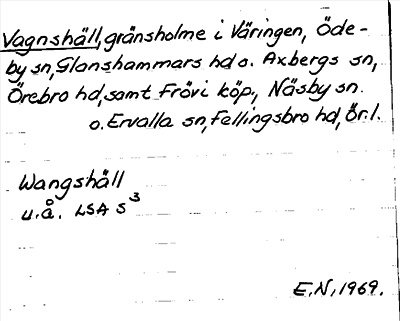 Vagnshäll, gränsholme i Väringen, Öde-
by sn, Glanshammars hd o. Axbergs sn,
Örebro hd, samt Frövi köp, Näsby sn
o. Ervalla sn, Fellingsbro hd, Ör. l.
Wangshäll
u.å. LSA S³
E.N, 1969.